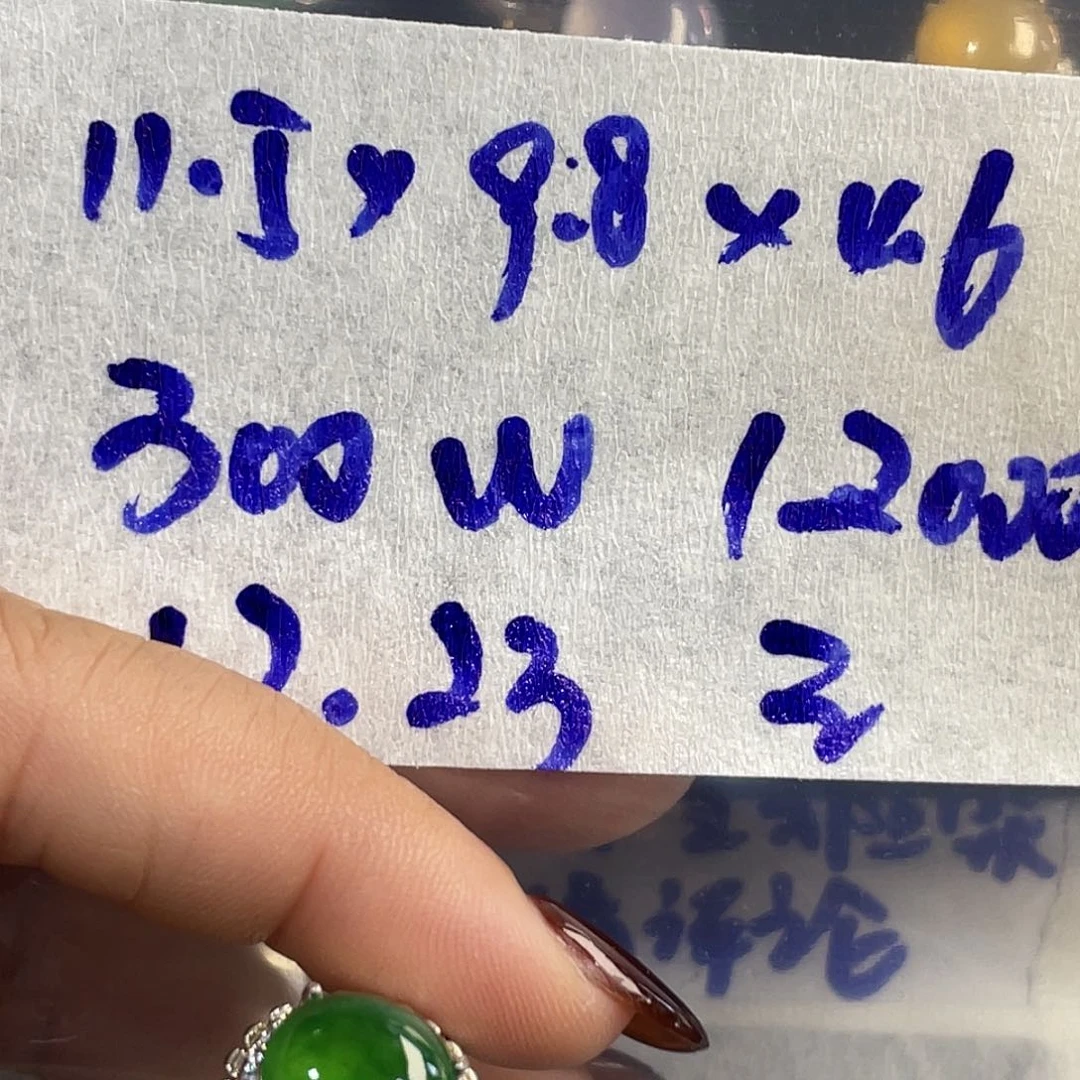 11.5×9.8×4.6
300W 12000
12.23 三
评论